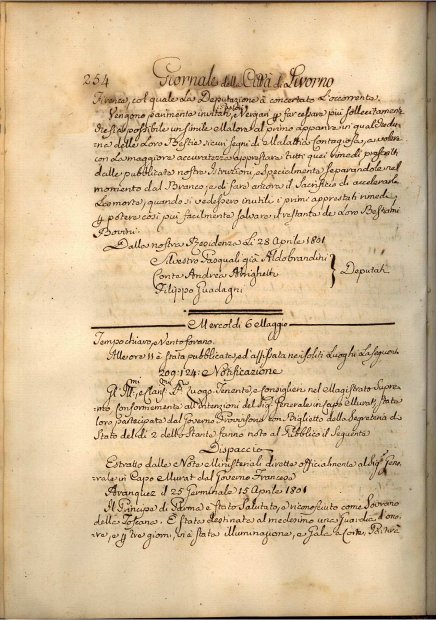 254 Giornale della Città di Livorno
Firenze, col quale La Deputazione à concertato L'occorrente.
Vengono parimente invitati i Vergari p far cessare più sollecitamente
che sia possibile un simile allora al primo apparire in qualche
ma delle Loro Bestie i segni di Malattia Contagiosa, a volere
con La maggiore accuratezza apprestare tutti quei rimedi prescritti
dalle pubblicate nostre Istruzioni, e specialmente separandole nel
momento dal Branco, e di fare ancora il Sacrifizio di accelerarle
La morte, quando si vedessero inutili i primi apprestati rimedi,
p potere così più facilmente salvare il restante de Loro Bestiami
Bovini.
Dalla nostra Residenza Li 28 Aprile 1801
Silvestro Pasquali già Aldobrandini
Conte Andrea Alrighetti
Filippo Guadagni
Deputati
Mercoldì 6 Maggio
Tempo chiaro, e Vento fovano.
Alle ore 11 è stata pubblicata, ed affissata nei soliti Luoghi La seguen.
209:124: e Notificazione
Gl' Ill.mi e Clar. Luogo Tenente, e Consiglieri nel Magistrato Supre-
mo conformemente all'intenzioni del Sig. Generale in Capo Murat, stata
loro partecipata dal Governo Provvisorio con Biglietto della Segreteria di
Stato del dì 2 dello Stante fanno noto al Pubblico il Seguente
Dispaccio
Estratto dalle Note Ministeriali dirette officialmente al Sig. Gene-
rale in Capo Murat dal Governo Francese
Aranguez il 25 Germinale 15 Aprile 1801
Il Principe di Parma è stato Salutato, e riconosciuto come Sovrano
della Toscana. È stata destinata al medesimo una Guardia d'ono-
re, e p tre giorni vi è stata illuminazione, e Gala a Corte.